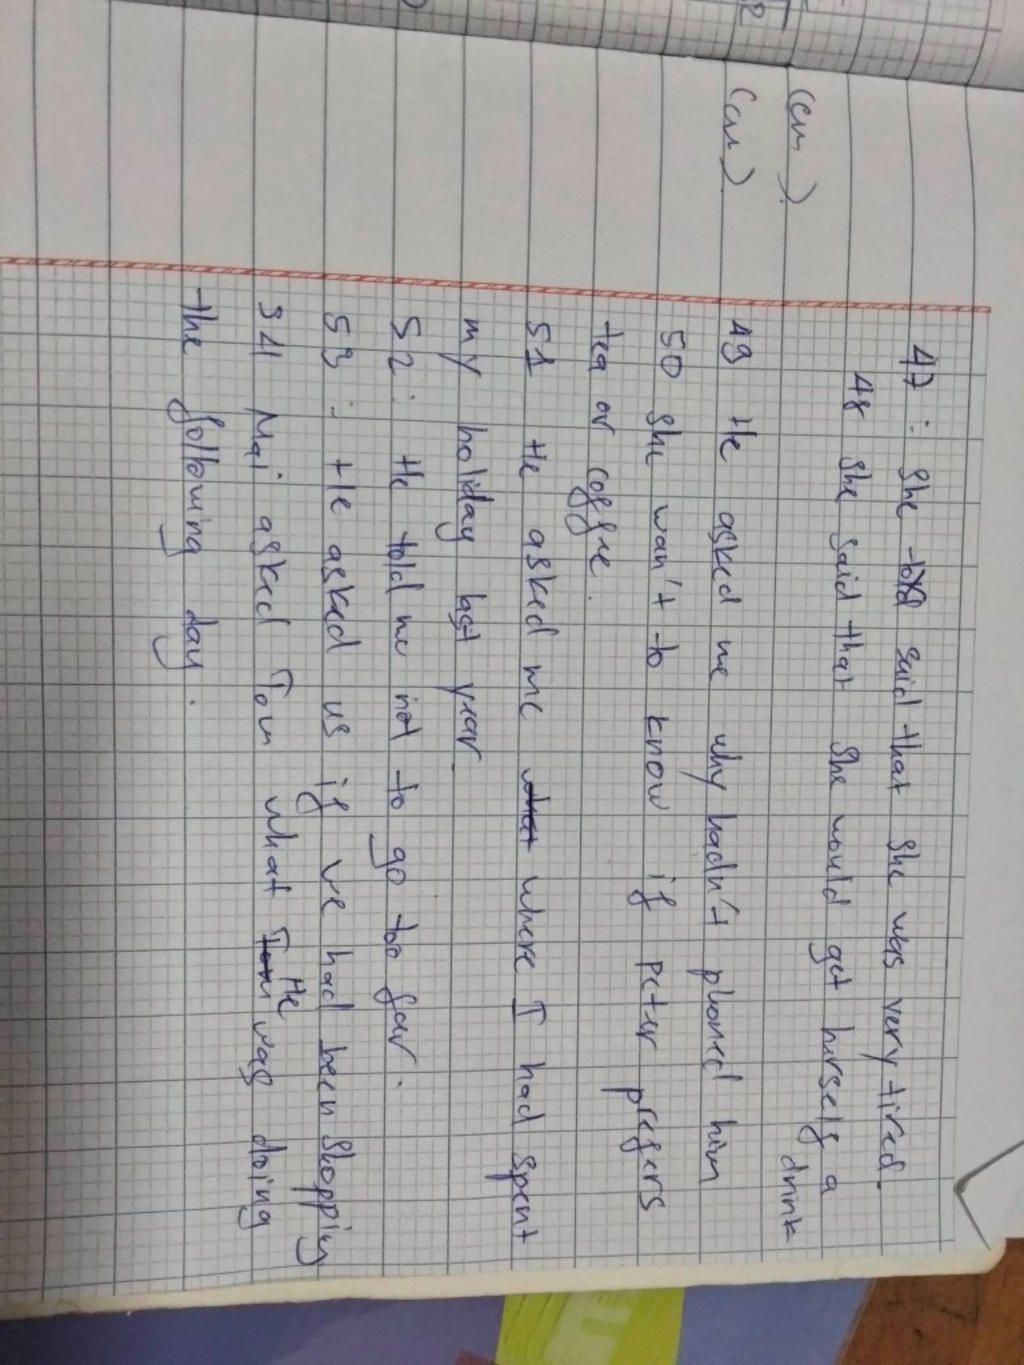 47 : she said that she was very tired.
48 she said that she would get herself a
drink
(cm)
(cm)
49 He asked me why hadn't phoned him
50 she wan't to know if peter prefers
tea or coffre.
51 He asked me where I had spent
my holiday last year.
52 : He told me not to go too far.
53 : He asked us if we had been shopping
54 Mai asked Tom what He was doing
the following day.